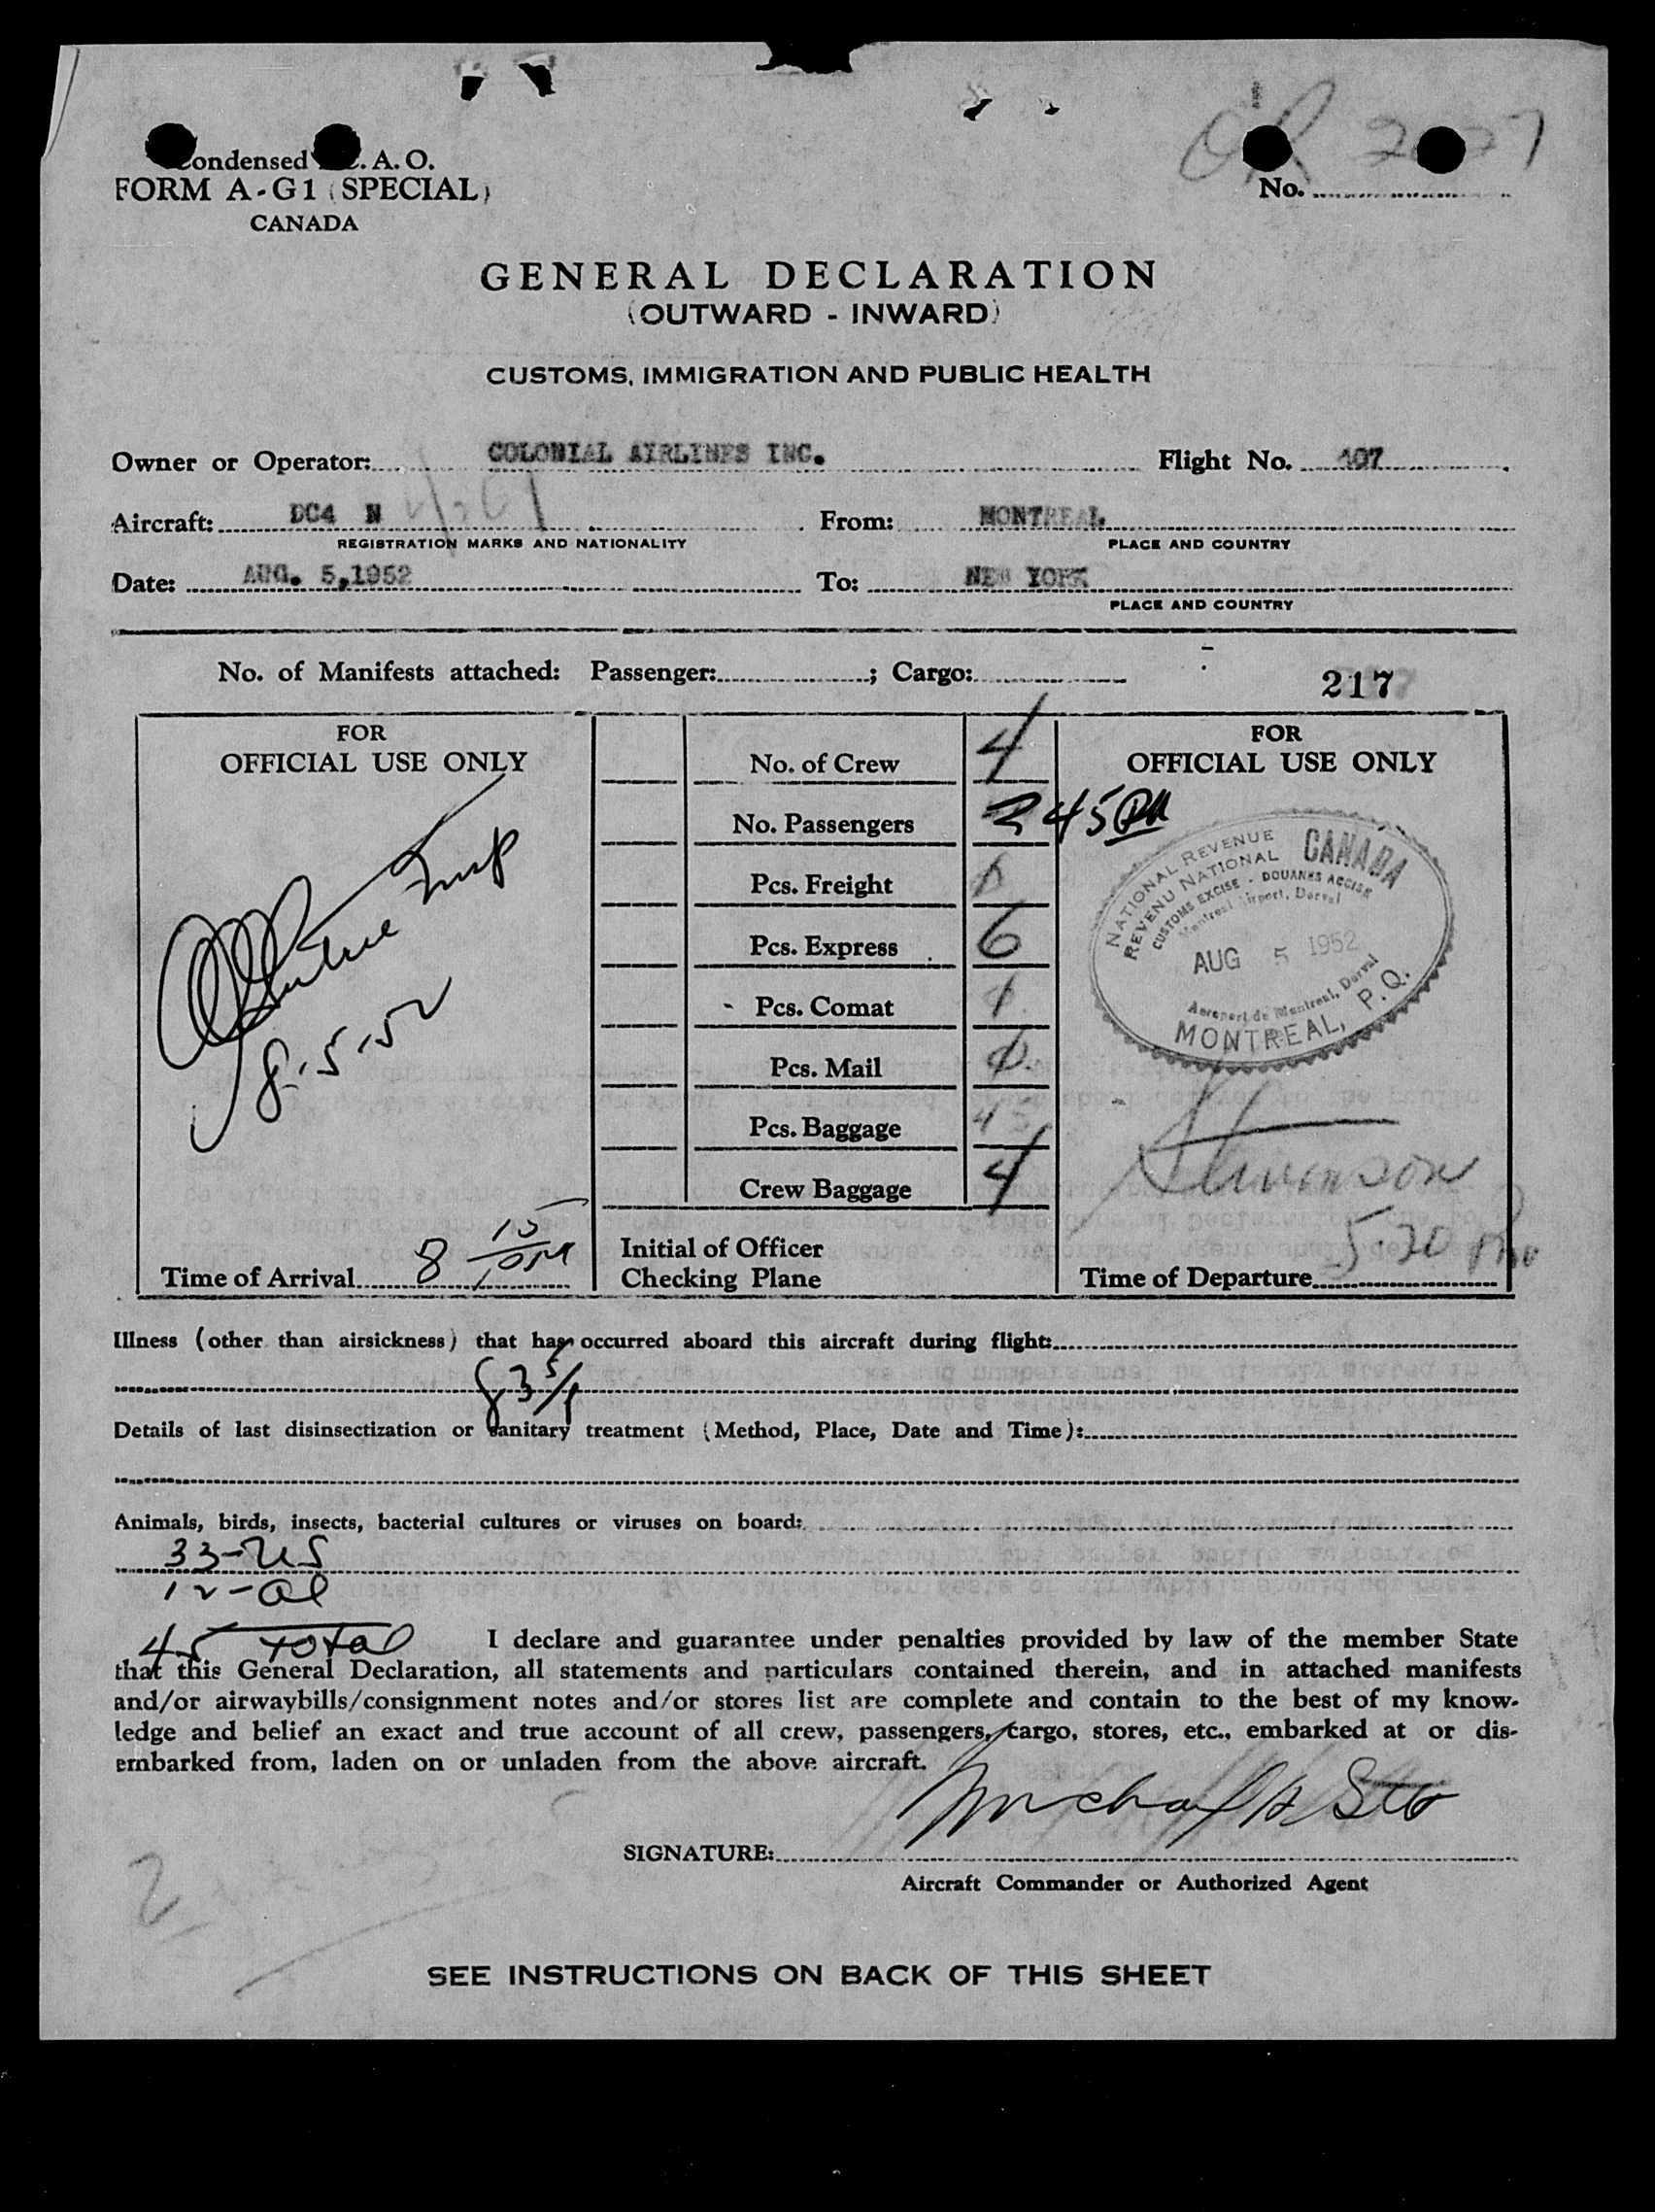 Condensed I.C.A.O.
FORM A-G1 (SPECIAL)
CANADA
No.
GENERAL DECLARATION
(OUTWARD - INWARD)
CUSTOMS, IMMIGRATION AND PUBLIC HEALTH
Owner or Operator: COLONIAL AIRLINES INC. Flight No. 107
Aircraft: DC4 N From: MONTREAL
REGISTRATION MARKS AND NATIONALITY PLACE AND COUNTRY
Date: AUG. 5,1952 To: NEW YORK
PLACE AND COUNTRY
No. of Manifests attached: Passenger: ; Cargo:
217
FOR
OFFICIAL USE ONLY
8-5-52
Time of Arrival 8 15 PM
No. of Crew 4
No. Passengers 45
Pcs. Freight
Pcs. Express 6
Pcs. Comat
Pcs. Mail
Pcs. Baggage 45
Crew Baggage 4
Initial of Officer
Checking Plane
FOR
OFFICIAL USE ONLY
NATIONAL REVENUE
CANADA
REVENU NATIONAL
CUSTOMS EXCISE - DOUANES ACCISE
Montreal Airport, Dorval
AUG 5 1952
Aeroport de Montreal, Dorval
MONTREAL, P.Q.
Stevenson
5-30 PM
Time of Departure
Illness (other than airsickness) that has occurred aboard this aircraft during flight:
Details of last disinsectization or sanitary treatment (Method, Place, Date and Time):
Animals, birds, insects, bacterial cultures or viruses on board:
33-US
12-al
45 Total
I declare and guarantee under penalties provided by law of the member State
that this General Declaration, all statements and particulars contained therein, and in attached manifests
and/or airwaybills/consignment notes and/or stores list are complete and contain to the best of my know-
ledge and belief an exact and true account of all crew, passengers, cargo, stores, etc., embarked at or dis-
embarked from, laden on or unladen from the above aircraft.
SIGNATURE:
Aircraft Commander or Authorized Agent
2
SEE INSTRUCTIONS ON BACK OF THIS SHEET